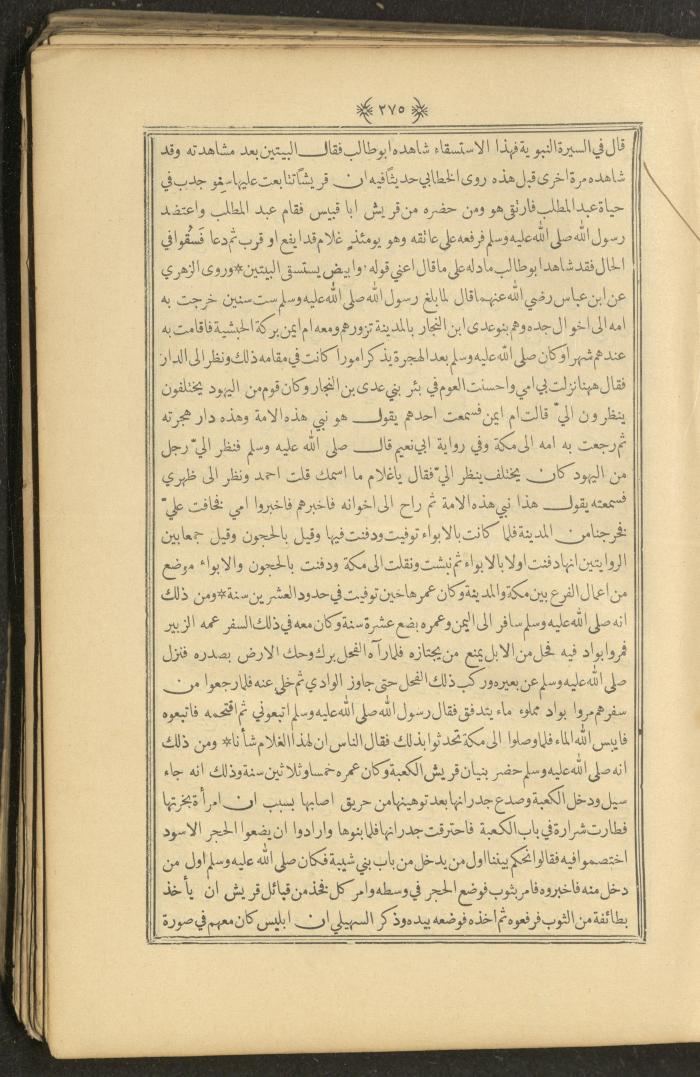 ٢٧٥
قال في السيرة النبوية فهذا الاستسقاء شاهده ابوطالب فقال البيتين بعد مشاهدته وقد
شاهده مرة اخرى قبل هذه روى الخطابي حديثًا فيه ان قريشًا تتابعت عليها سنو جدب في
حياة عبد المطلب فارتقى هو ومن حضره من قريش ابا قبيس فقام عبد المطلب واعتضد
رسول الله صلى الله عليه وسلم فرفعه على عاتقه وهو يومئذٍ غلام قد ايفع او قرب ثم دعا فَسُقوا في
الحال فقد شاهد ابوطالب ما دله على ما قال اعني قوله وابيض يستسقى البيتين * وروى الزهري
عن ابن عباس رضي الله عنهما قال لما بلغ رسول الله صلى الله عليه وسلم ست سنين خرجت به
امه الى اخوال جده وهم بنو عدى ابن النجار بالمدينة تزورهم ومعه ام ايمن بركة الحبشية فاقامت به
عندهم شهرا وكان صلى الله عليه وسلم بعد الهجرة يذكر امورا كانت في مقامه ذلك ونظر الى الدار
فقال ههنا نزلت بي امي واحسنت العوم في بئر بني عدى بن النجار وكان قوم من اليهود يختلفون
ينظرون اليّ قالت ام ايمن فسمعت احدهم يقول هو نبي هذه الامة وهذه دار هجرته
ثم رجعت به امه الى مكة وفي رواية ابي نعيم قال صلى الله عليه وسلم فنظر اليّ رجل
من اليهود كان يختلف ينظر اليّ فقال ياغلام ما اسمك قلت احمد ونظر الى ظهري
فسمعته يقول هذا نبي هذه الامة ثم راح الى اخوانه فاخبرهم فاخبروا امي فخافت عليّ
فخرجنا من المدينة فلما كانت بالابواء توفيت ودفنت فيها وقيل بالحجون وقيل جمعا بين
الروايتين انها دفنت اولا بالابواء ثم نبشت ونقلت الى مكة ودفنت بالحجون والابواء موضع
من اعمال الفرع بين مكة والمدينة وكان عمرها حين توفيت في حدود العشرين سنة * ومن ذلك
انه صلى الله عليه وسلم سافر الى اليمن وعمره بضع عشرة سنة وكان معه في ذلك السفر عمه الزبير
فمروا بواد فيه فحل من الابل يمنع من يجتازه فلما رآه الفحل برك وحك الارض بصدره فنزل
صلى الله عليه وسلم عن بعيره وركب ذلك الفحل حتى جاوز الوادي ثم خلى عنه فلما رجعوا من
سفرهم مروا بواد مملوء ماء يتدفق فقال رسول الله صلى الله عليه وسلم اتبعوني ثم اقتحمه فاتبعوه
فايبس الله الماء فلما وصلوا الى مكة تحدثوا بذلك فقال الناس ان لهذا الغلام شأنا * ومن ذلك
انه صلى الله عليه وسلم حضر بنيان قريش الكعبة وكان عمره خمسا وثلاثين سنة وذلك انه جاء
سيل ودخل الكعبة وصدع جدرانها بعد توهينها من حريق اصابها بسبب ان امرأة بخرتها
فطارت شرارة في باب الكعبة فاحترقت جدرانها فلما بنوها وارادوا ان يضعوا الحجر الاسود
اختصموا فيه فقالوا نحكم بيننا اول من يدخل من باب بني شيبة فكان صلى الله عليه وسلم اول من
دخل منه فاخبروه فامر بثوب فوضع الحجر في وسطه وامر كل فخذ من قبائل قريش ان يأخذ
بطائفة من الثوب فرفعوه ثم اخذه فوضعه بيده وذكر السهيلي ان ابليس كان معهم في صورة